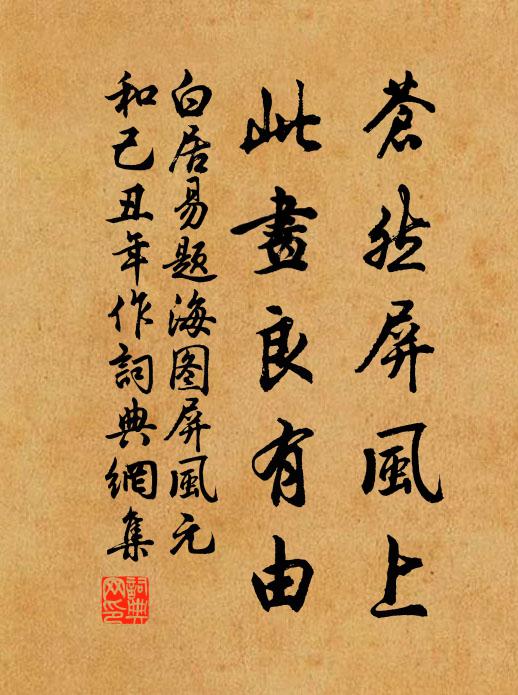 蒼然屏風上
此畫良有由
白居易題海图屏風元
和己丑年作詞典網集
詞典
网印